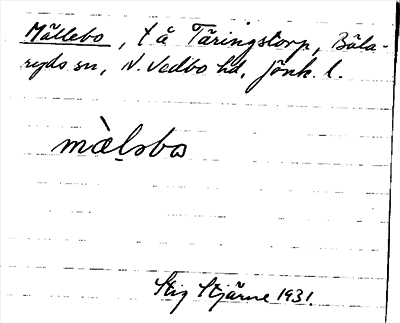 Mällebo, t å Täringstorp, Bäla-
ryds sn, N. Vedbo hd, Jönk. l.
màl̬əbω
Stig Stjärne 1931.